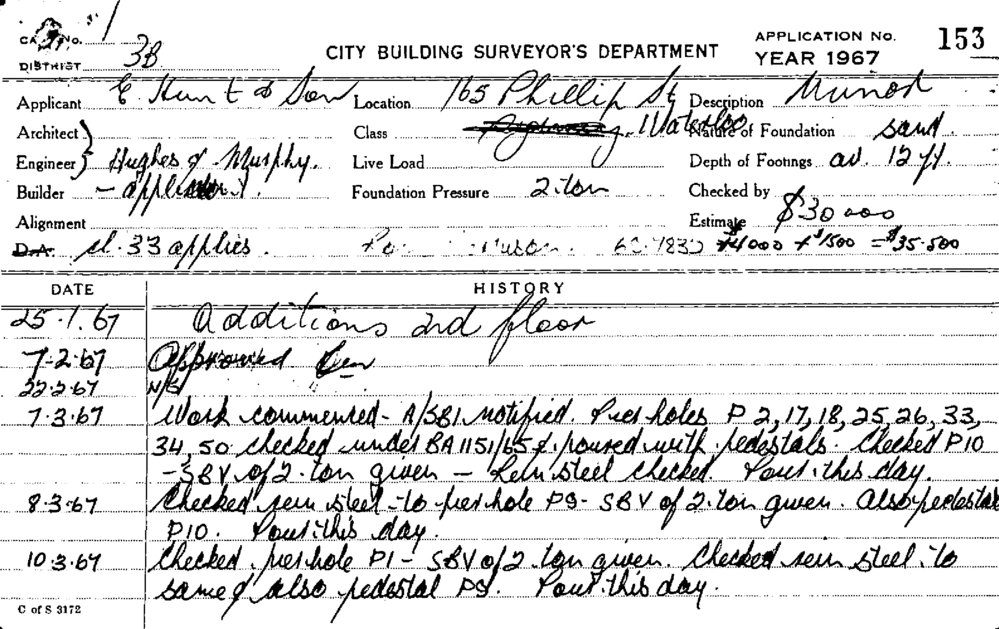 CARD No. 1
DISTRICT 3B CITY BUILDING SURVEYOR'S DEPARTMENT APPLICATION No. 153
YEAR 1967
Applicant E Hunt & Son Location 165 Phillip St Description Minor
Architect Class Waterloo Nature of Foundation sand
Engineer Hughes & Murphy. Live Load Depth of Footings av. 12 ft.
Builder - applicant. Foundation Pressure 2 ton Checked by
Alignment Estimate $30000
D.A. cl. 33 applies. $4000 + $1500 = $35.500
DATE HISTORY
25.1.67 Additions 2nd floor
7-2-67 Approved
22.2.67 N/S
7.3.67 Work commenced - A/SBI notified. Pier holes P 2, 17, 18, 25, 26, 33,
34, 50 checked under BA 1151/65 & poured with pedestals. Checked P10
- SBV of 2 ton given - Rein steel checked. Pour this day.
8.3.67 Checked rein steel to pier hole P9 - SBV of 2 ton given. Also pedestal
P10. Pour this day.
10.3.67 Checked pier hole P1 - SBV of 2 ton given. Checked rein steel to
same & also pedestal P9. Pour this day.
C of S 3172